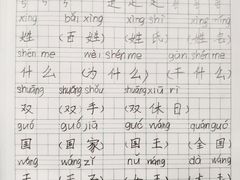 xìng bǎi xìng xìng shì xìng míng
姓 (百姓) (姓氏) (姓名)
shén me wèi shén me gàn shén me
什么 (为什么) (干什么)
shuāng shuāng shǒu shuāng xiū rì
双 (双手) (双休日)
guó guó jiā guó wáng quán guó
国 (国家) (国王) (全国)
wáng wáng zǐ nǚ wáng dà wáng